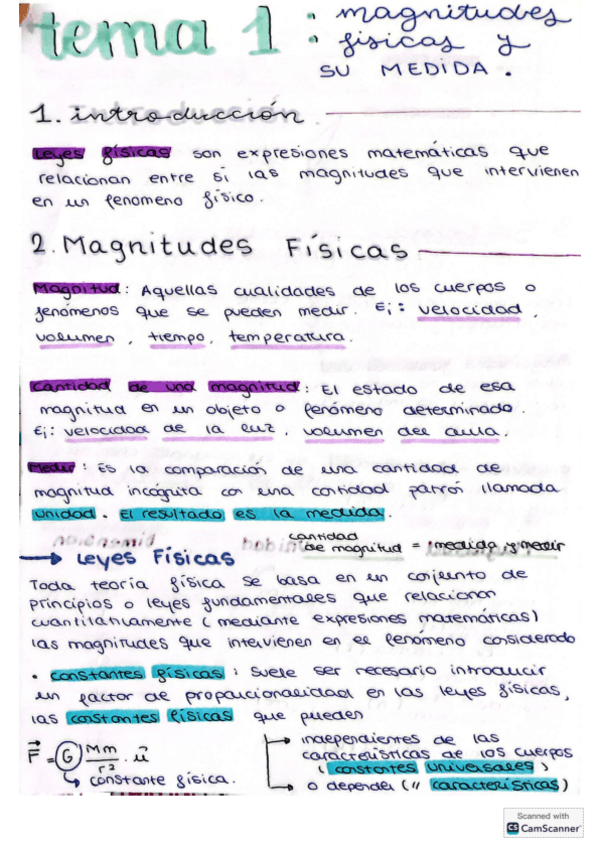 tema 1 : magnitudes
físicas y
SU MEDIDA.
1. introducción
Leyes físicas son expresiones matemáticas que
relacionan entre sí las magnitudes que intervienen
en un fenomeno físico.
2. Magnitudes Físicas
Magnitud: Aquellas cualidades de los cuerpos o
fenómenos que se pueden medir. Ej: velocidad,
volumen, tiempo, temperatura.
Cantidad de una magnitud: El estado de esa
magnitud en un objeto o fenómeno determinado.
Ej: velocidad de la luz, volumen del aula.
Medir: Es la comparación de una cantidad de
magnitud incógnita con una cantidad patrón llamada
unidad. El resultado es la medida.
cantidad
de magnitud = medida y medir
→ Leyes Físicas
Toda teoría física se basa en un conjunto de
principios o leyes fundamentales que relacionan
cuantitativamente (mediante expresiones matemáticas)
las magnitudes que intervienen en el fenómeno considerado
• constantes físicas: Suele ser necesario introducir
un factor de proporcionalidad en las leyes físicas,
las constantes físicas que pueden
independientes de las
características de los cuerpos
(constantes universales)
o depender (" características)
F = G Mm/r² · u
constante física.
Scanned with
CS CamScanner